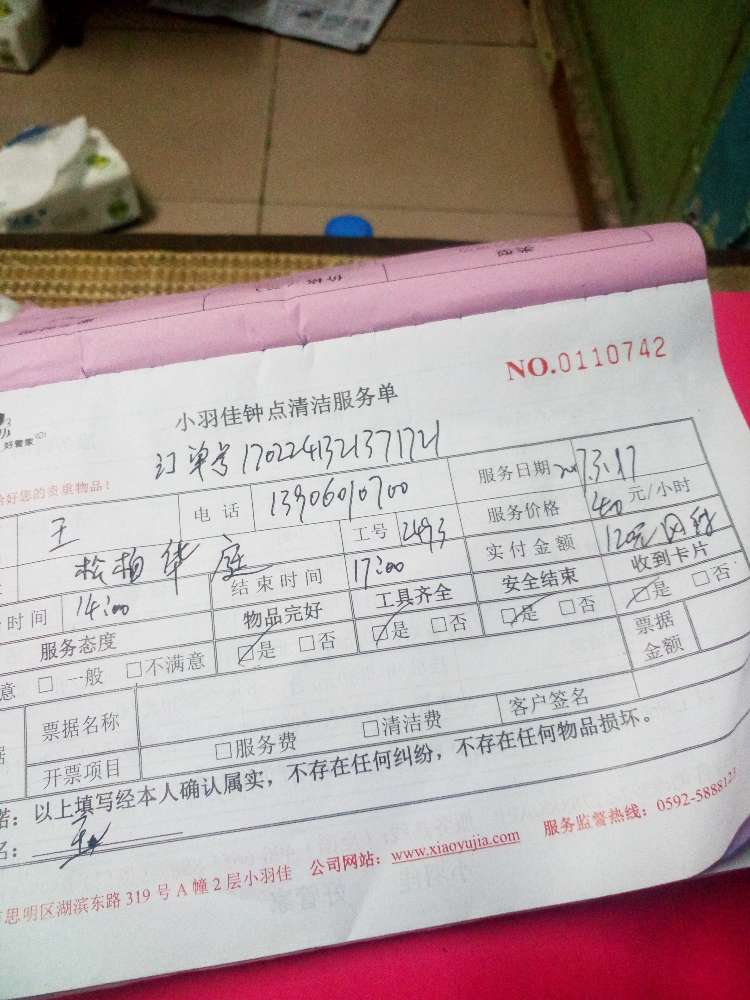 NO.0110742
好管家
小羽佳钟点清洁服务单
订单号1702241321371721
好您的贵重物品!
王 电话 13906010700 服务日期 2017.3.17
松柏华庭 工号 2493 服务价格 40 元/小时
时间 14:00 结束时间 17:00 实付金额 120元
服务态度 物品完好 工具齐全 安全结束 收到卡片
意 □ 一般 □不满意 ☑是 □否 ☑是 □否 ☑是 □否 ☑是 □否
票据名称 票据金额
开票项目 □服务费 □清洁费 客户签名
诺:以上填写经本人确认属实,不存在任何纠纷,不存在任何物品损坏。
名:
思明区湖滨东路319号A幢2层小羽佳 公司网站:www.xiaoyujia.com 服务监督热线:0592-5888123